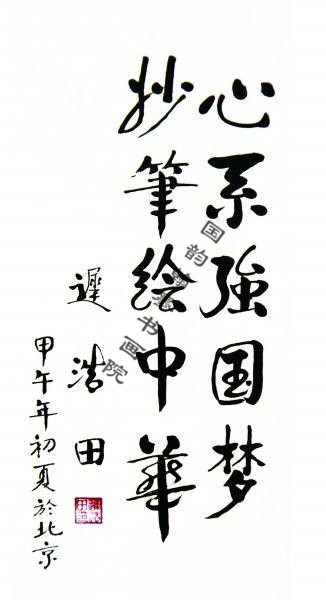 心系強国梦
抄筆绘中华
遲浩田
甲午年初夏於北京
国韵书画院